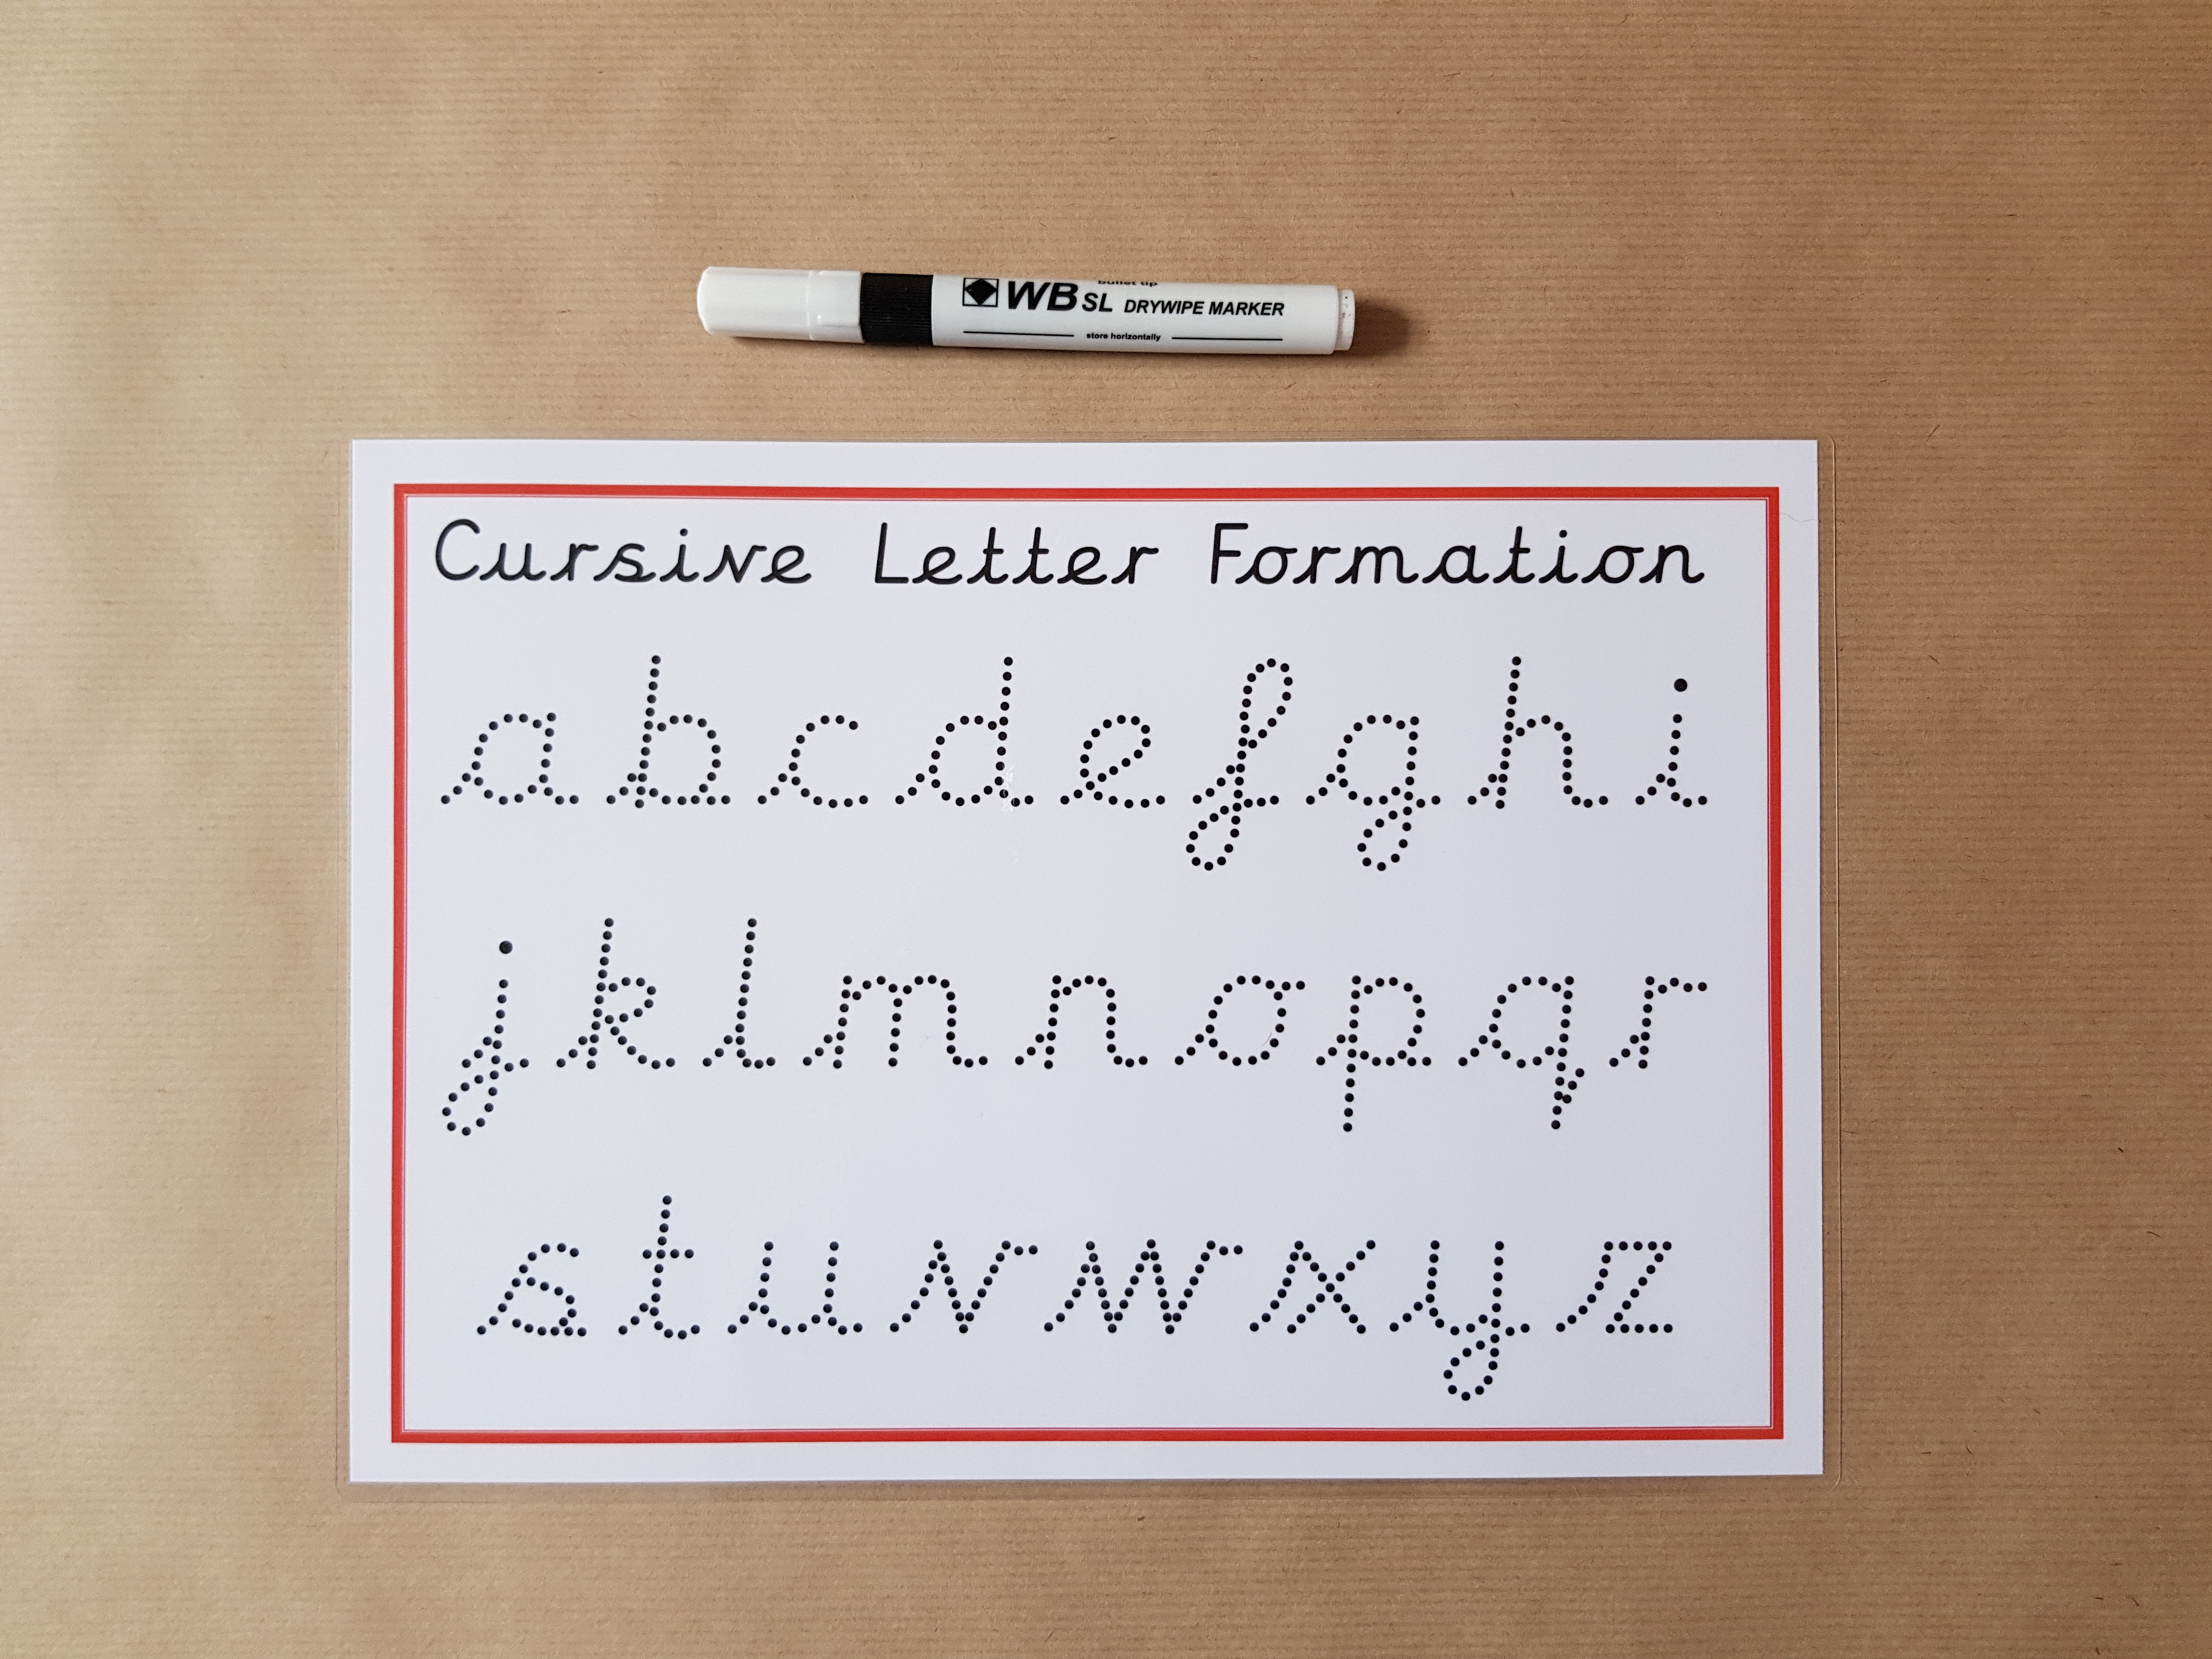 bullet tip
WB SL DRYWIPE MARKER
store horizontally
Cursive Letter Formation
a b c d e f g h i
j k l m n o p q r
s t u v w x y z